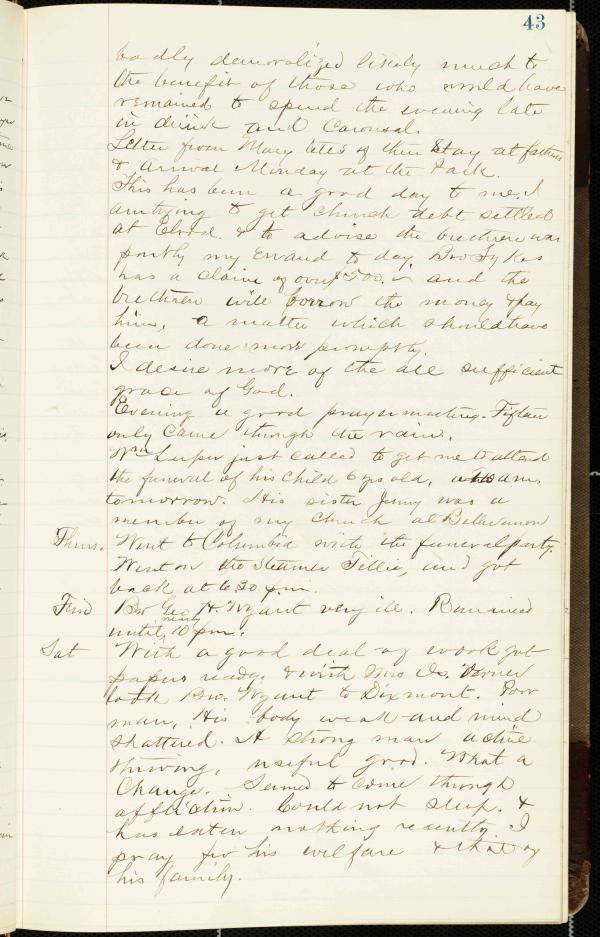 43
badly demoralized likely much to
the benefit of those who would have
remained to spend the evening late
in drink and Carousal.
Letter from Mary tells of their Stay at fathers
& arrival Monday at the Park.
This has been a good day to me, I
am trying to get church debt settled
at Elizd. & to advise the brethren was
partly my errand to day. Bro Sykes
has a claim of over $500. and the
brethren will borrow the money & pay
him, a matter which should have
been done more promptly.
I desire more of the all sufficient
grace of God.
Evening a good prayermeeting. Fifteen
only Came through the rain.
Wm Luper just called to get me to attend
the funeral of his child 6 yrs old, am
tomorrow. His sister Jenny was a
member of my church at Bellevernon
Thurs. Went to Columbia with the funeral party.
Went on the Steamer Tillie, and got
back at 6.30 p.m.
Frid Bro Geo. H. Wyant very ill. Remained
until nearly 10 pm.
Sat With a good deal of work got
papers ready. & with Mrs Dr. Varner
took Bro. Wyant to Dixmont. Poor
man, His body weak and mind
shattered. A strong man active
thriving, useful good. What a
Change. Seemed to Come through
affliction. Could not sleep. &
has eaten nothing recently. I
pray for his welfare & that of
his family.